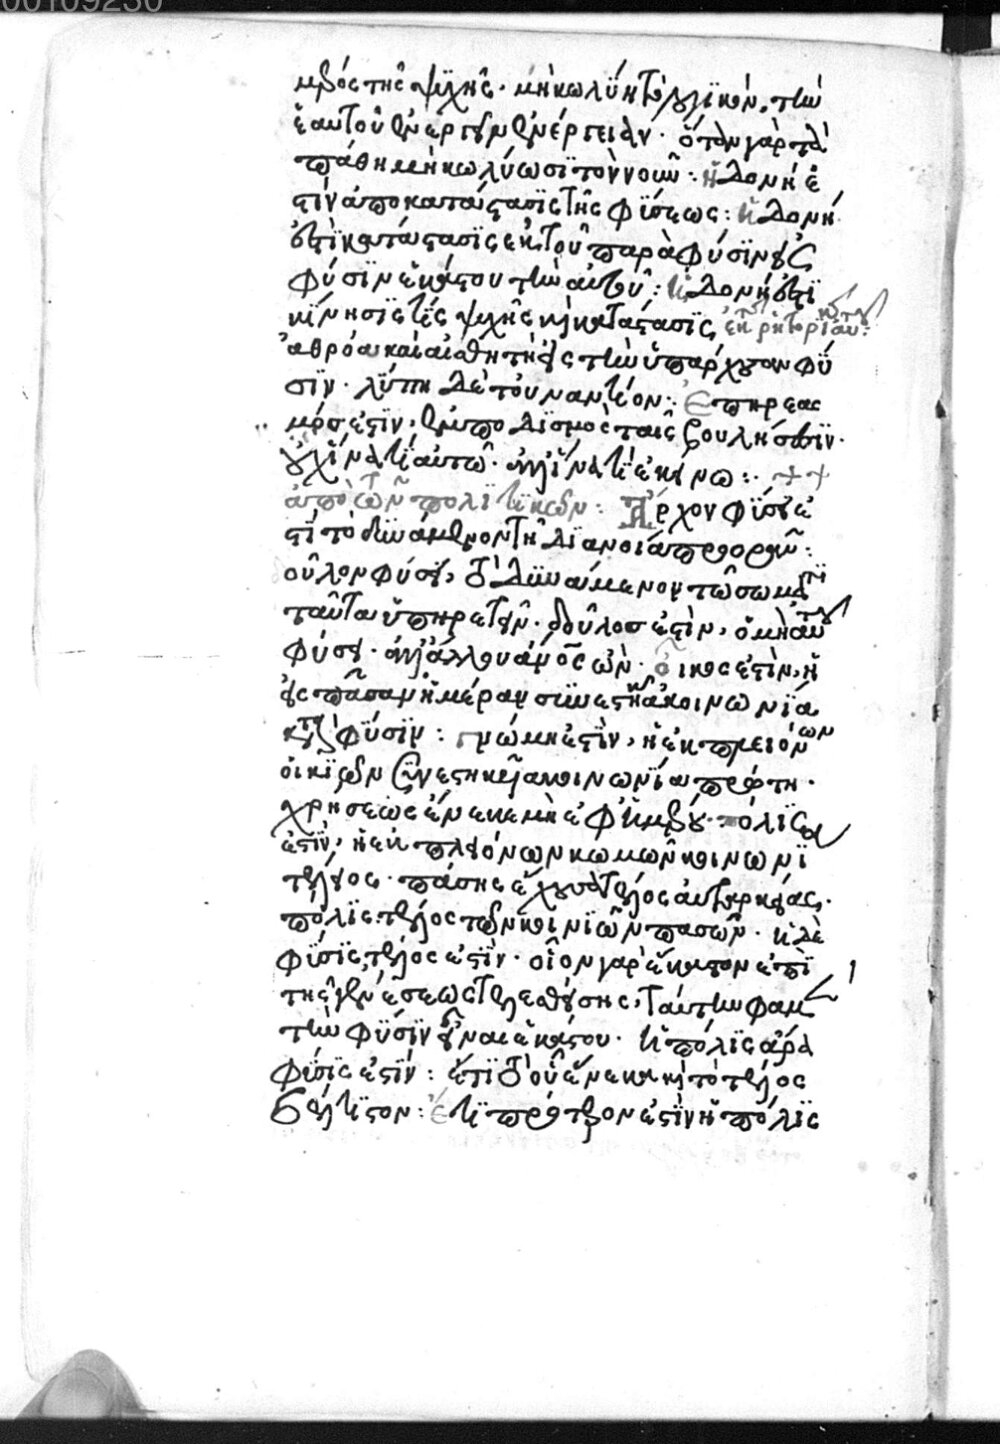 μέρος τῆς ψυχῆς· μὴ κωλύῃ τὸ λογικὸν, τὴν
ἑαυτοῦ ἐνεργεῖν ἐνέργειαν· ὅταν γὰρ τὰ
πάθη μὴ κωλύωσι τὸν νοῦν: ἡδονή ἐ
στιν ἀποκατάστασις τῆς φύσεως: ἡδονή
ἐστι κατάστασις ἐκ τοῦ παρὰ φύσιν εἰς
φύσιν ἑκάστου τὴν αὐτοῦ: ἡδονή ἐστι
κίνησις τῆς ψυχῆς κὴ κατάστασις, ἐκ τῆς ῥητορι
ἀθρόα καὶ αἰσθητὴ εἰς τὴν ὑπάρχουσαν φύ
σιν· λύπη δὲ τοὐναντίον: Ἐπηρεας
μός ἐστιν, ἐμποδισμὸς ταῖς βουλήσεσιν·
οὐχ ἵνα τι αὐτῷ· ἀλλ' ἵνα τι ἐκείνῳ:
ἀπὸ τῶν πολιτικῶν: Ἄρχον φύσει ἐ
στὶ τὸ δυνάμενον τῇ διανοίᾳ προορᾶν:
δοῦλον φύσει, τὸ δυνάμενον τῷ σώματι
ταῦτα ὑπηρετεῖν· δοῦλος ἐστὶν, ὁ μὴ αὑτοῦ
φύσει· ἀλλ' ἄλλου ἄνος ὢν· οἶκος ἐστὶν, ἡ
εἰς πᾶσαν ἡμέραν συνεστηκυῖα κοινωνία
κατὰ φύσιν: κώμη ἐστὶν, ἡ ἐκ πλειόνων
οἰκιῶν συνεστηκυῖα κοινωνία πρώτη·
χρήσεως ἕνεκε μὴ ἐφημέρου· πόλις
ἐστὶν, ἡ ἐκ πλειόνων κωμῶν κοινωνί
τέλειος· πάσης ἔχουσα τέλος αὐταρκείας·
πόλις τέλος τῶν κοινωνιῶν πασῶν· ἡ δὲ
φύσις τέλος ἐστὶν· οἷον γὰρ ἕκαστον ἐστὶ
τῆς γενέσεως τελεσθείσης, ταύτην φαμὲν
τὴν φύσιν εἶναι ἑκάστου· ἡ πόλις ἄρα
φύσις ἐστὶν: ἔτι τὸ οὗ ἕνεκα κὴ τὸ τέλος
βέλτιστον: ἔτι πρότερον ἐστὶν ἡ πόλις